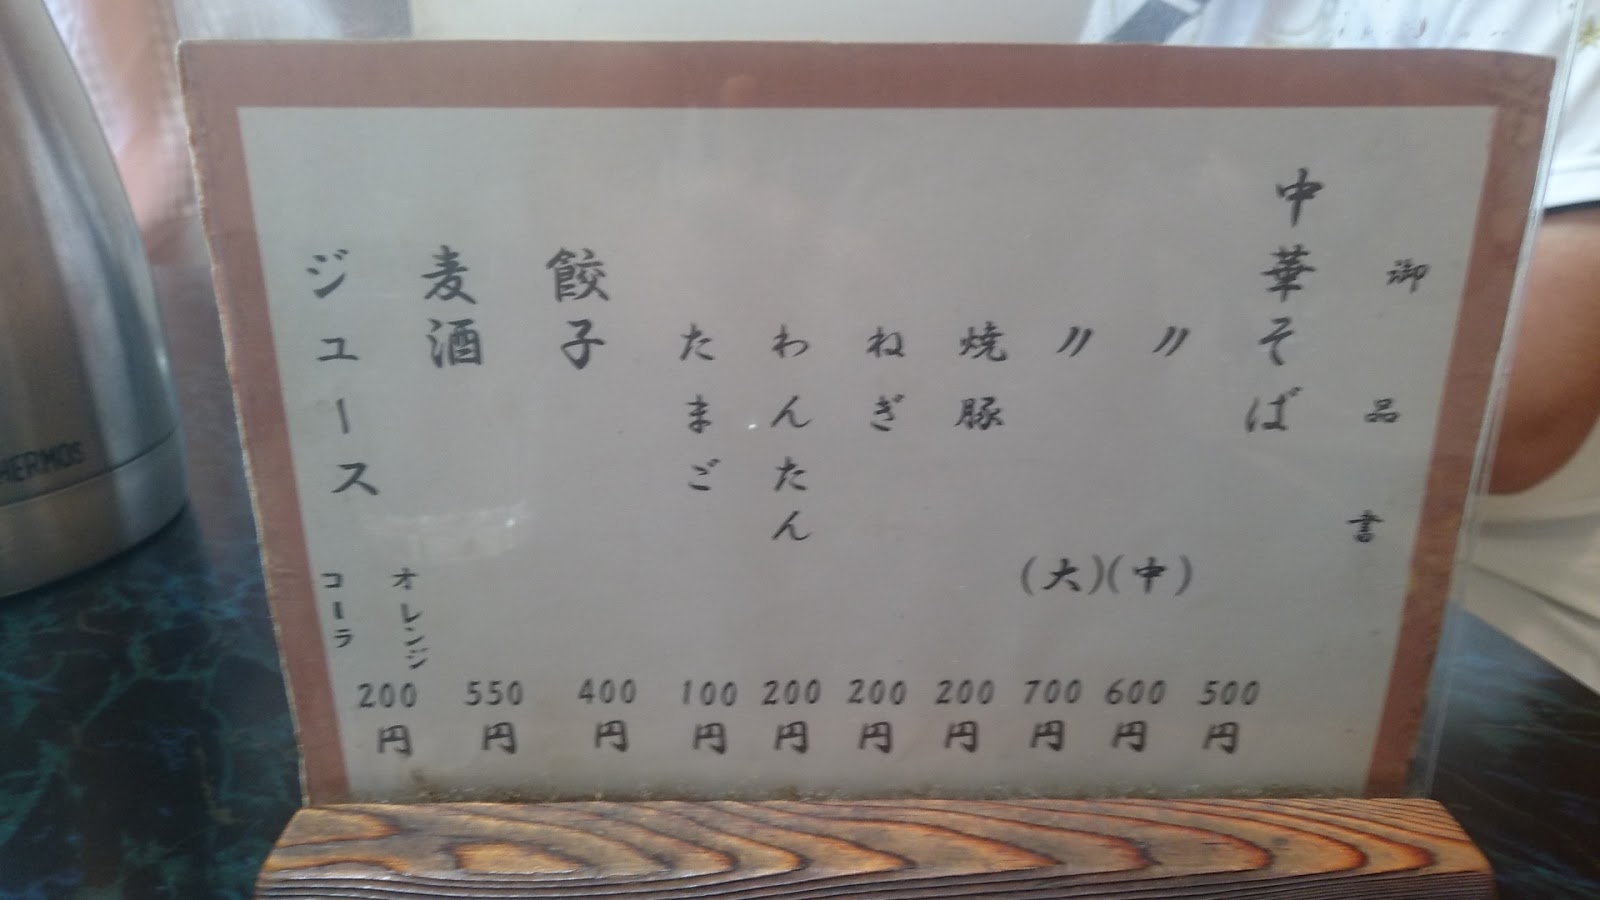 御品書
中華そば 500円
〃 (中) 600円
〃 (大) 700円
焼豚 200円
ねぎ 200円
わんたん 200円
たまご 100円
餃子 400円
麦酒 550円
ジュース オレンジ コーラ 200円
THERMOS